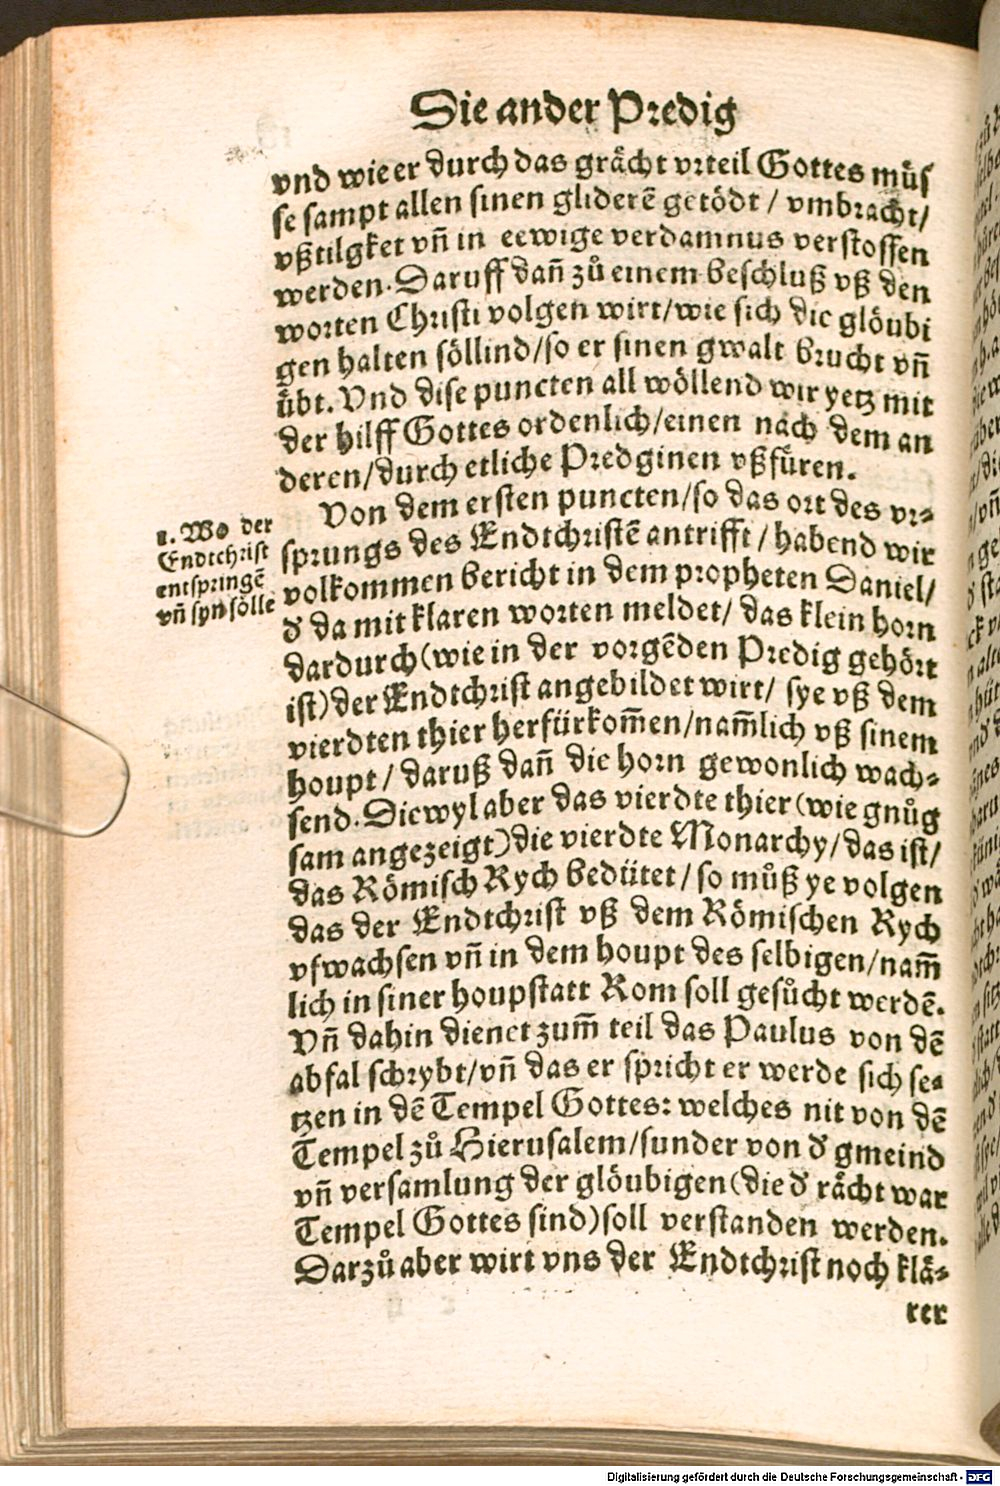 Die ander Predig
vnd wie er durch das grächt vrteil Gottes můs
se sampt allen sinen gliderẽ getödt / vmbracht/
vßtilgket vñ in eewige verdamnus verstossen
werden. Daruff dañ zů einem beschluß vß den
worten Christi volgen wirt/wie sich die glöubi
gen halten söllind/so er sinen gwalt brucht vñ
ůbt. Vnd dise puncten all wöllend wir yetz mit
der hilff Gottes ordenlich/einen nach dem an
deren/durch etliche Predginen vßfüren.
1. Wo der
Endtchrist
entspringẽ
vñ syn sölle
Von dem ersten puncten/so das ort des vr⸗
sprungs des Endtchristẽ antrifft / habend wir
volkommen bericht in dem propheten Daniel/
d̕ da mit klaren worten meldet/ das klein horn
dardurch (wie in der vorgẽden Predig gehört
ist) der Endtchrist angebildet wirt/ sye vß dem
vierdten thier herfürkom̃en/nam̃lich vß sinem
houpt / daruß dañ die horn gewonlich wach⸗
send. Diewyl aber das vierdte thier (wie gnůg
sam angezeigt) die vierdte Monarchy/das ist/
das Römisch Rych bedütet / so můß ye volgen
das der Endtchrist vß dem Römischen Rych
vfwachsen vñ in dem houpt des selbigen/nam̃
lich in siner houpstatt Rom soll gesůcht werdẽ.
Vñ dahin dienet zum̃ teil das Paulus von dẽ
abfal schrybt/vñ das er spricht er werde sich se⸗
tzen in dẽ Tempel Gottes: welches nit von dẽ
Tempel zů Hierusalem/sunder von d̕ gmeind
vñ versamlung der glöubigen (die d̕ rächt war
Tempel Gottes sind) soll verstanden werden.
Darzů aber wirt vns der Endtchrist noch klä⸗
rer
Digitalisierung gefördert durch die Deutsche Forschungsgemeinschaft - DFG